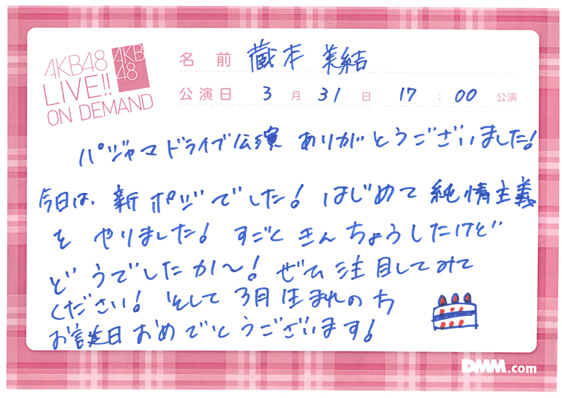 AKB48
LIVE!!
ON DEMAND
AKB
48
名前 蔵本 美結
公演日 3月31日 17:00公演
パジャマドライブ公演 ありがとうございました!
今日は、新ポジでした! はじめて純情主義
を やりました! すごく きんちょうしたけど
どうでしたか〜! ぜひ注目してみて
ください! そして 3月生まれのち
お誕生日おめでとうございます!
DMM.com